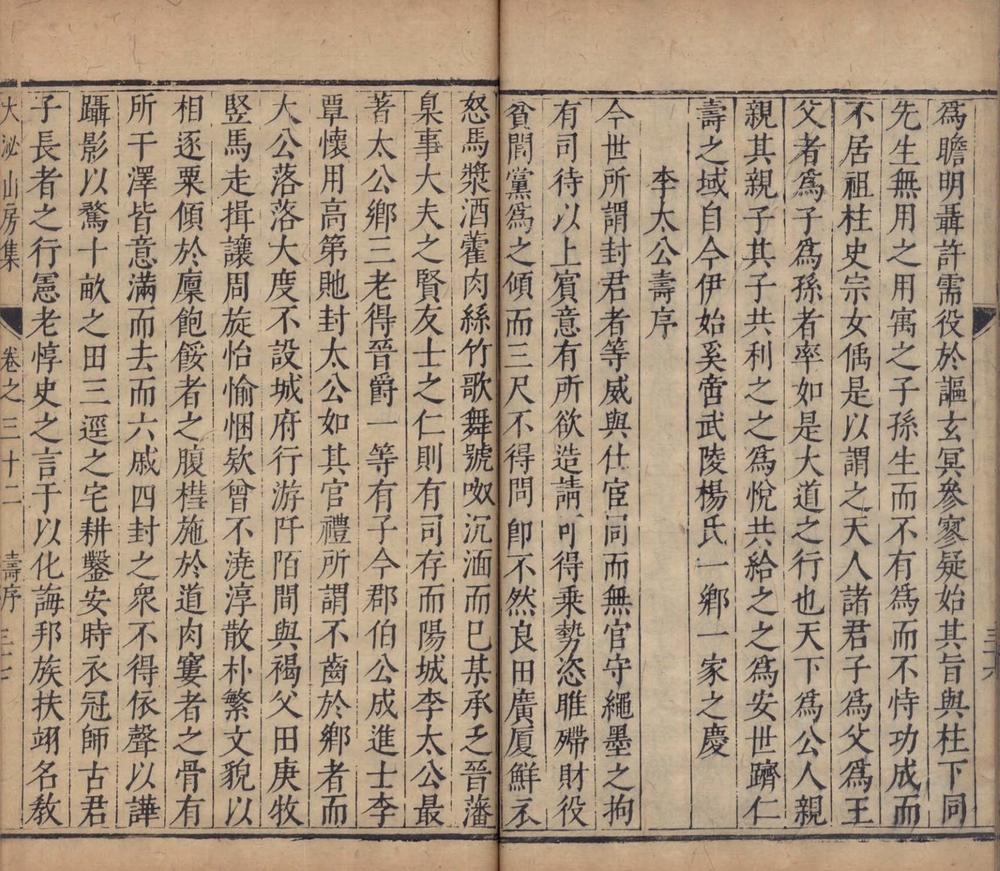 為瞻明聶許需役於謳玄冥參寥疑始其旨與柱下同
先生無用之用寓之子孫生而不有為而不恃功成而
不居祖柱史宗女偊是以謂之天人諸君子為父為王
父者為子為孫者率如是大道之行也天下為公人親
親其親子其子共利之之為悅共給之之為安世躋仁
壽之域自今伊始奚啻武陵楊氏一鄉一家之慶
李太公壽序
今世所謂封君者等威與仕宦同而無官守繩墨之拘
有司待以上賓意有所欲造請可得乘勢恣睢殢財役
貧閭黨為之傾而三尺不得問即不然良田廣厦鮮衣
怒馬漿酒藿肉絲竹歌舞號呶沉湎而已某承乏晉藩
臬事大夫之賢友士之仁則有司存而陽城李太公最
著太公鄉三老得晉爵一等有子今郡伯公成進士李
覃懷用高第貤封太公如其官禮所謂不齒於鄉者而
大公落落大度不設城府行游阡陌間與褐父田庚牧
豎馬走揖讓周旋怡愉悃欵曾不澆淳散朴繁文貌以
相逐粟傾於廪飽餒者之腹槥施於道肉窶者之骨有
所干澤皆意滿而去而六戚四封之衆不得依聲以譁
躡影以騖十畝之田三逕之宅耕鑿安時衣冠師古君
子長者之行憲老惇史之言于以化誨邦族扶翊名教
大泌山房集 卷之三十二 壽序 三十七